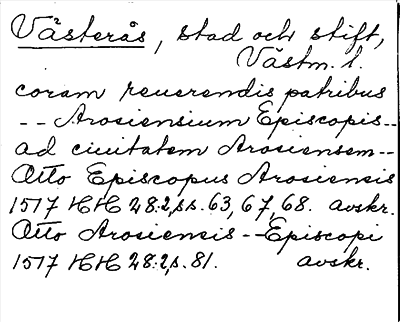 Västerås, stad och stift,
Västm. l.
coram reuerendis patribus
-- Arosiensium Episcopis--
ad ciuitatem Arosiensem--
Otto Episcopus Arosiensis
1517 HH 28:2, s. 63, 67, 68. avskr.
Otto Arosiensis -- Episcopi
1517 HH 28:2, s. 81. avskr.